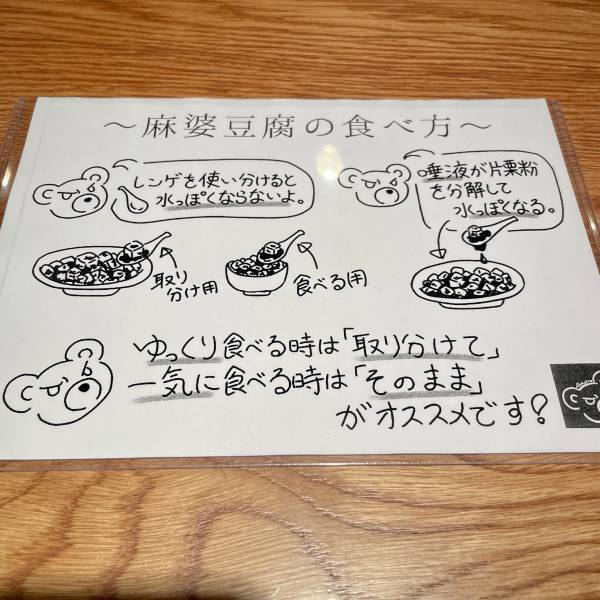 ～麻婆豆腐の食べ方～
レンゲを使い分けると
水っぽくならないよ。
唾液が片栗粉
を分解して
水っぽくなる。
取り
分け用
食べる用
ゆっくり食べる時は「取り分けて」
一気に食べる時は「そのまま」
がオススメです？